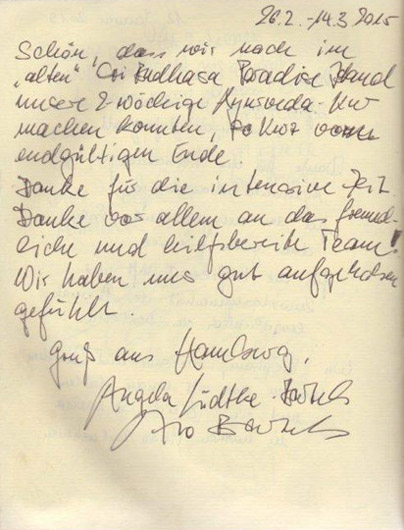 26.2.-14.3.2015
Schön, dass wir noch im
„alten“ Sri Budhasa Paradise Island
unsere 2-wöchige Ayurveda-Kur
machen konnten, so kurz vorm
endgültigen Ende.
Danke für die intensive Zeit.
Danke vor allem an das freund-
liche und hilfsbereite Team!
Wir haben uns gut aufgehoben
gefühlt.
Gruß aus Hamburg,
Angela Lüdtke-